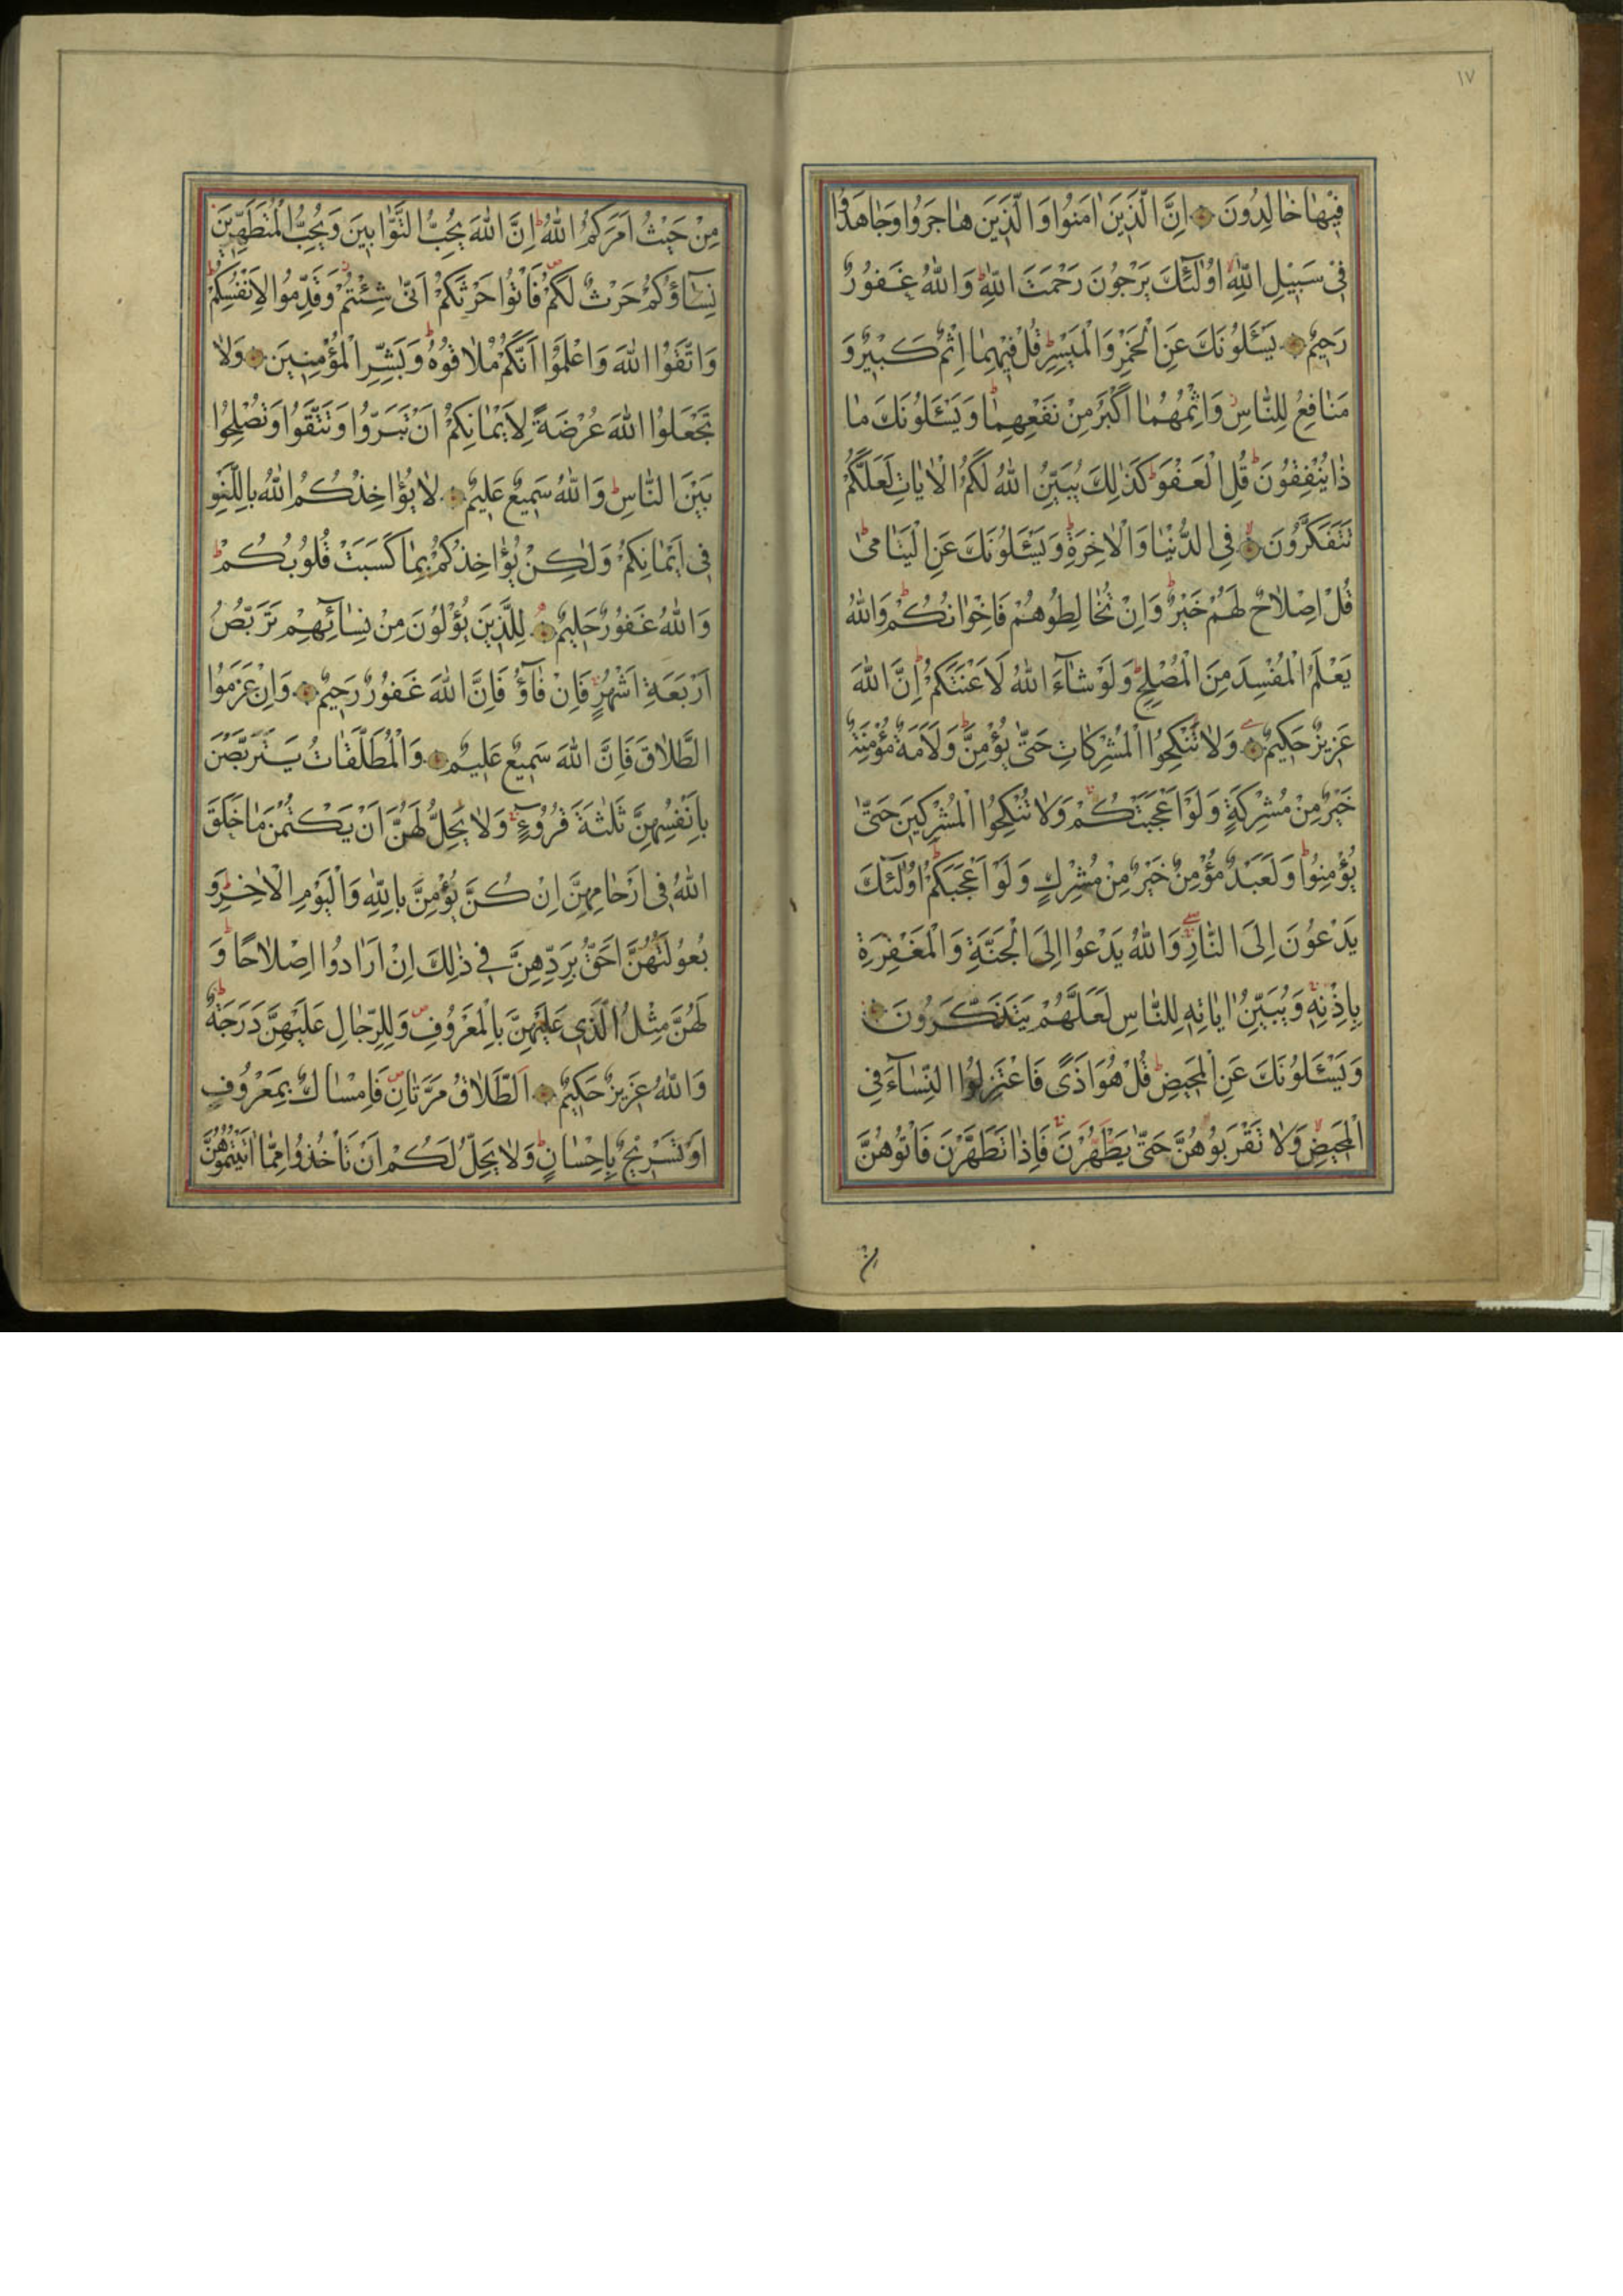 ١٧
فِيهَا خَالِدُونَ اِنَّ الَّذِينَ اٰمَنُوا وَالَّذِينَ هَاجَرُوا وَجَاهَدُوا
فِى سَبِيلِ اللّٰهِ اُولٰٓئِكَ يَرْجُونَ رَحْمَتَ اللّٰهِ وَاللّٰهُ غَفُورٌ
رَحِيمٌ يَسْـَٔلُونَكَ عَنِ الْخَمْرِ وَالْمَيْسِرِ قُلْ فِيهِمَا اِثْمٌ كَبِيرٌ وَ
مَنَافِعُ لِلنَّاسِ وَاِثْمُهُمَا اَكْبَرُ مِنْ نَفْعِهِمَا وَيَسْـَٔلُونَكَ مَا
ذَا يُنْفِقُونَ قُلِ الْعَفْوَ كَذٰلِكَ يُبَيِّنُ اللّٰهُ لَكُمُ الْاٰيَاتِ لَعَلَّكُمْ
تَتَفَكَّرُونَ فِى الدُّنْيَا وَالْاٰخِرَةِ وَيَسْـَٔلُونَكَ عَنِ الْيَتَامٰى
قُلْ اِصْلَاحٌ لَهُمْ خَيْرٌ وَاِنْ تُخَالِطُوهُمْ فَاِخْوَانُكُمْ وَاللّٰهُ
يَعْلَمُ الْمُفْسِدَ مِنَ الْمُصْلِحِ وَلَوْ شَآءَ اللّٰهُ لَاَعْنَتَكُمْ اِنَّ اللّٰهَ
عَزِيزٌ حَكِيمٌ وَلَا تَنْكِحُوا الْمُشْرِكَاتِ حَتّٰى يُؤْمِنَّ وَلَاَمَةٌ مُؤْمِنَةٌ
خَيْرٌ مِنْ مُشْرِكَةٍ وَلَوْ اَعْجَبَتْكُمْ وَلَا تُنْكِحُوا الْمُشْرِكِينَ حَتّٰى
يُؤْمِنُوا وَلَعَبْدٌ مُؤْمِنٌ خَيْرٌ مِنْ مُشْرِكٍ وَلَوْ اَعْجَبَكُمْ اُولٰٓئِكَ
يَدْعُونَ اِلَى النَّارِ وَاللّٰهُ يَدْعُوا اِلَى الْجَنَّةِ وَالْمَغْفِرَةِ
بِاِذْنِهِ وَيُبَيِّنُ اٰيَاتِهِ لِلنَّاسِ لَعَلَّهُمْ يَتَذَكَّرُونَ
وَيَسْـَٔلُونَكَ عَنِ الْمَحِيضِ قُلْ هُوَ اَذًى فَاعْتَزِلُوا النِّسَآءَ فِى
الْمَحِيضِ وَلَا تَقْرَبُوهُنَّ حَتّٰى يَطْهُرْنَ فَاِذَا تَطَهَّرْنَ فَأْتُوهُنَّ
مِنْ
مِنْ حَيْثُ اَمَرَكُمُ اللّٰهُ اِنَّ اللّٰهَ يُحِبُّ التَّوَّابِينَ وَيُحِبُّ الْمُتَطَهِّرِينَ
نِسَآؤُكُمْ حَرْثٌ لَكُمْ فَأْتُوا حَرْثَكُمْ اَنّٰى شِئْتُمْ وَقَدِّمُوا لِاَنْفُسِكُمْ
وَاتَّقُوا اللّٰهَ وَاعْلَمُوا اَنَّكُمْ مُلَاقُوهُ وَبَشِّرِ الْمُؤْمِنِينَ وَلَا
تَجْعَلُوا اللّٰهَ عُرْضَةً لِاَيْمَانِكُمْ اَنْ تَبَرُّوا وَتَتَّقُوا وَتُصْلِحُوا
بَيْنَ النَّاسِ وَاللّٰهُ سَمِيعٌ عَلِيمٌ لَا يُؤَاخِذُكُمُ اللّٰهُ بِاللَّغْوِ
فِى اَيْمَانِكُمْ وَلٰكِنْ يُؤَاخِذُكُمْ بِمَا كَسَبَتْ قُلُوبُكُمْ
وَاللّٰهُ غَفُورٌ حَلِيمٌ لِلَّذِينَ يُؤْلُونَ مِنْ نِسَآئِهِمْ تَرَبُّصُ
اَرْبَعَةِ اَشْهُرٍ فَاِنْ فَآؤُ فَاِنَّ اللّٰهَ غَفُورٌ رَحِيمٌ وَاِنْ عَزَمُوا
الطَّلَاقَ فَاِنَّ اللّٰهَ سَمِيعٌ عَلِيمٌ وَالْمُطَلَّقَاتُ يَتَرَبَّصْنَ
بِاَنْفُسِهِنَّ ثَلٰثَةَ قُرُوٓءٍ وَلَا يَحِلُّ لَهُنَّ اَنْ يَكْتُمْنَ مَا خَلَقَ
اللّٰهُ فِى اَرْحَامِهِنَّ اِنْ كُنَّ يُؤْمِنَّ بِاللّٰهِ وَالْيَوْمِ الْاٰخِرِ وَ
بُعُولَتُهُنَّ اَحَقُّ بِرَدِّهِنَّ فِى ذٰلِكَ اِنْ اَرَادُوا اِصْلَاحًا وَ
لَهُنَّ مِثْلُ الَّذِى عَلَيْهِنَّ بِالْمَعْرُوفِ وَلِلرِّجَالِ عَلَيْهِنَّ دَرَجَةٌ
وَاللّٰهُ عَزِيزٌ حَكِيمٌ اَلطَّلَاقُ مَرَّتَانِ فَاِمْسَاكٌ بِمَعْرُوفٍ
اَوْ تَسْرِيحٌ بِاِحْسَانٍ وَلَا يَحِلُّ لَكُمْ اَنْ تَأْخُذُوا مِمَّا اٰتَيْتُمُوهُنَّ